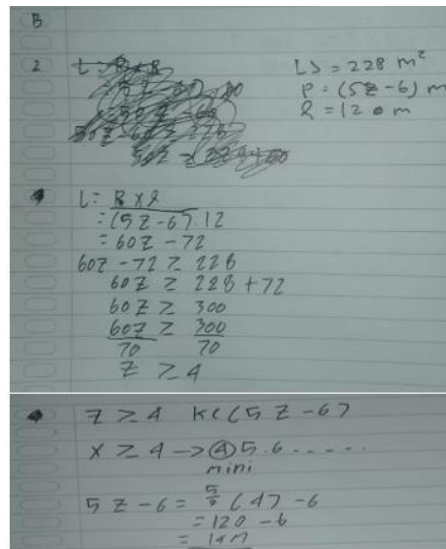 B
2
L ≥ = 228 m²
P = (5z - 6) m
l = 12 m
L = P x l
= (5z - 6) . 12
= 60z - 72
60z - 72 ≥ 228
60z ≥ 228 + 72
60z ≥ 300
60z ≥ 300
70 70
z ≥ 4
z ≥ 4 ke (5z - 6)
x ≥ 4 -> 4 5.6 .....
mini
5z - 6 = (4) - 6
= 120 - 6
= 14m